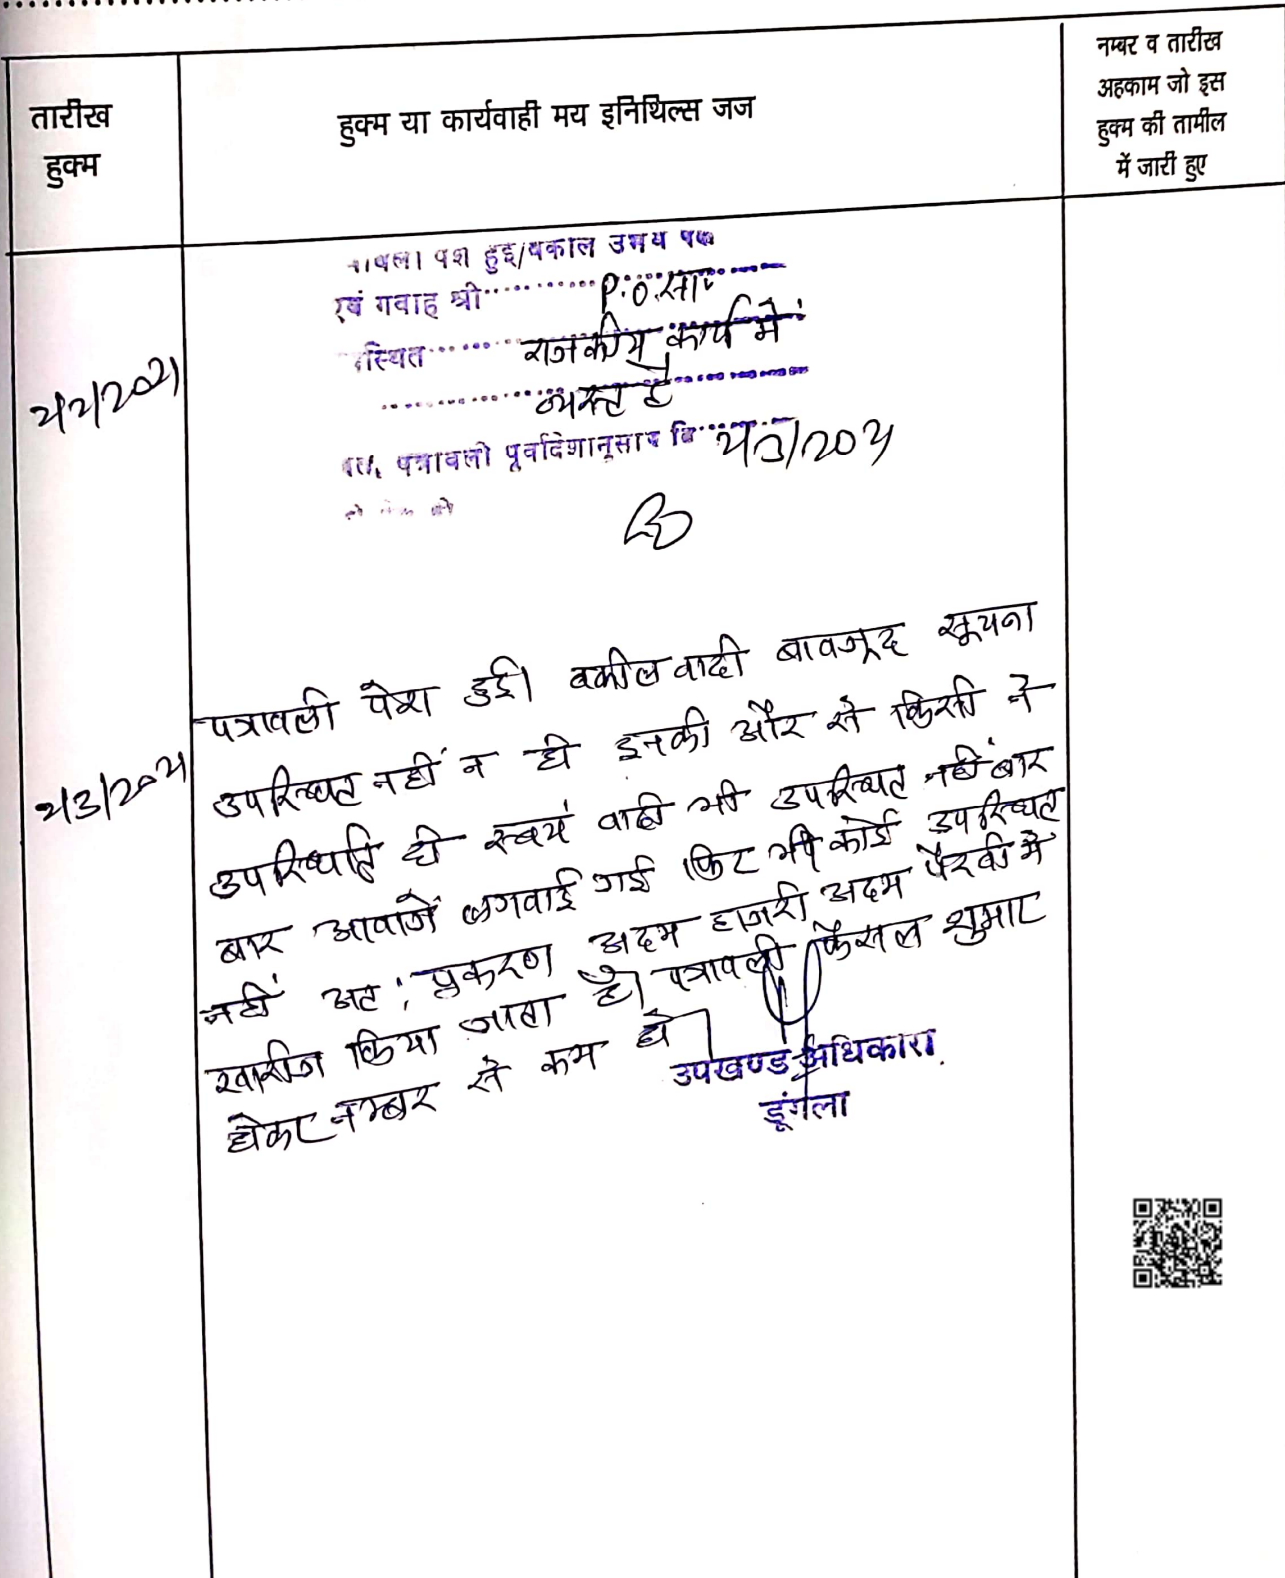 तारीख
हुक्म
हुक्म या कार्यवाही मय इनिथिल्स जज
नम्बर व तारीख
अहकाम जो इस
हुक्म की तामील
में जारी हुए
पेश हुई/वकील उभय पक्ष
एवं गवाह श्री P.O. सा.
स्थित राजकीय कार्य में
व्यस्त है
2/2/2021
पत्रावली पूर्वादेशानुसार दि 2/3/2021
2/3/2021
पत्रावली पेश हुई। वकील वादी बावजूद सूचना
उपस्थित नहीं न ही इनकी और से किसी ने
उपस्थिति दी स्वयं वादी भी उपस्थित नहीं बार
बार आवाजें लगवाई गई फिर भी कोई उपस्थित
नहीं अतः प्रकरण अदम हाजरी अदम पैरवी में
खारीज किया जाता है। पत्रावली फैसल शुमार
होकर नम्बर से कम हो।
उपखण्ड अधिकारी
डूंगला